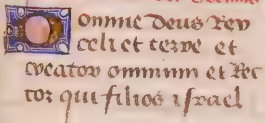 Domine Deus Rex
celi et terre et
creator omnium et Rec
tor qui filios israel